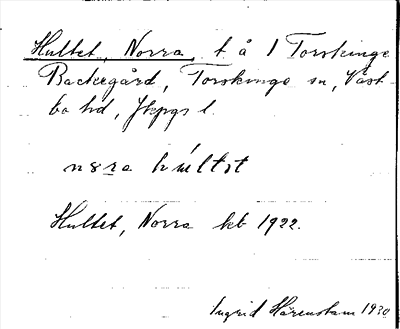 Hultet, Norra, t å 1 Torskinge
Backegård, Torskinge sn, Väst-
bo hd, Jkpgs l.
Hultet, Norra kb 1922.
Ingrid Härenstam 1930